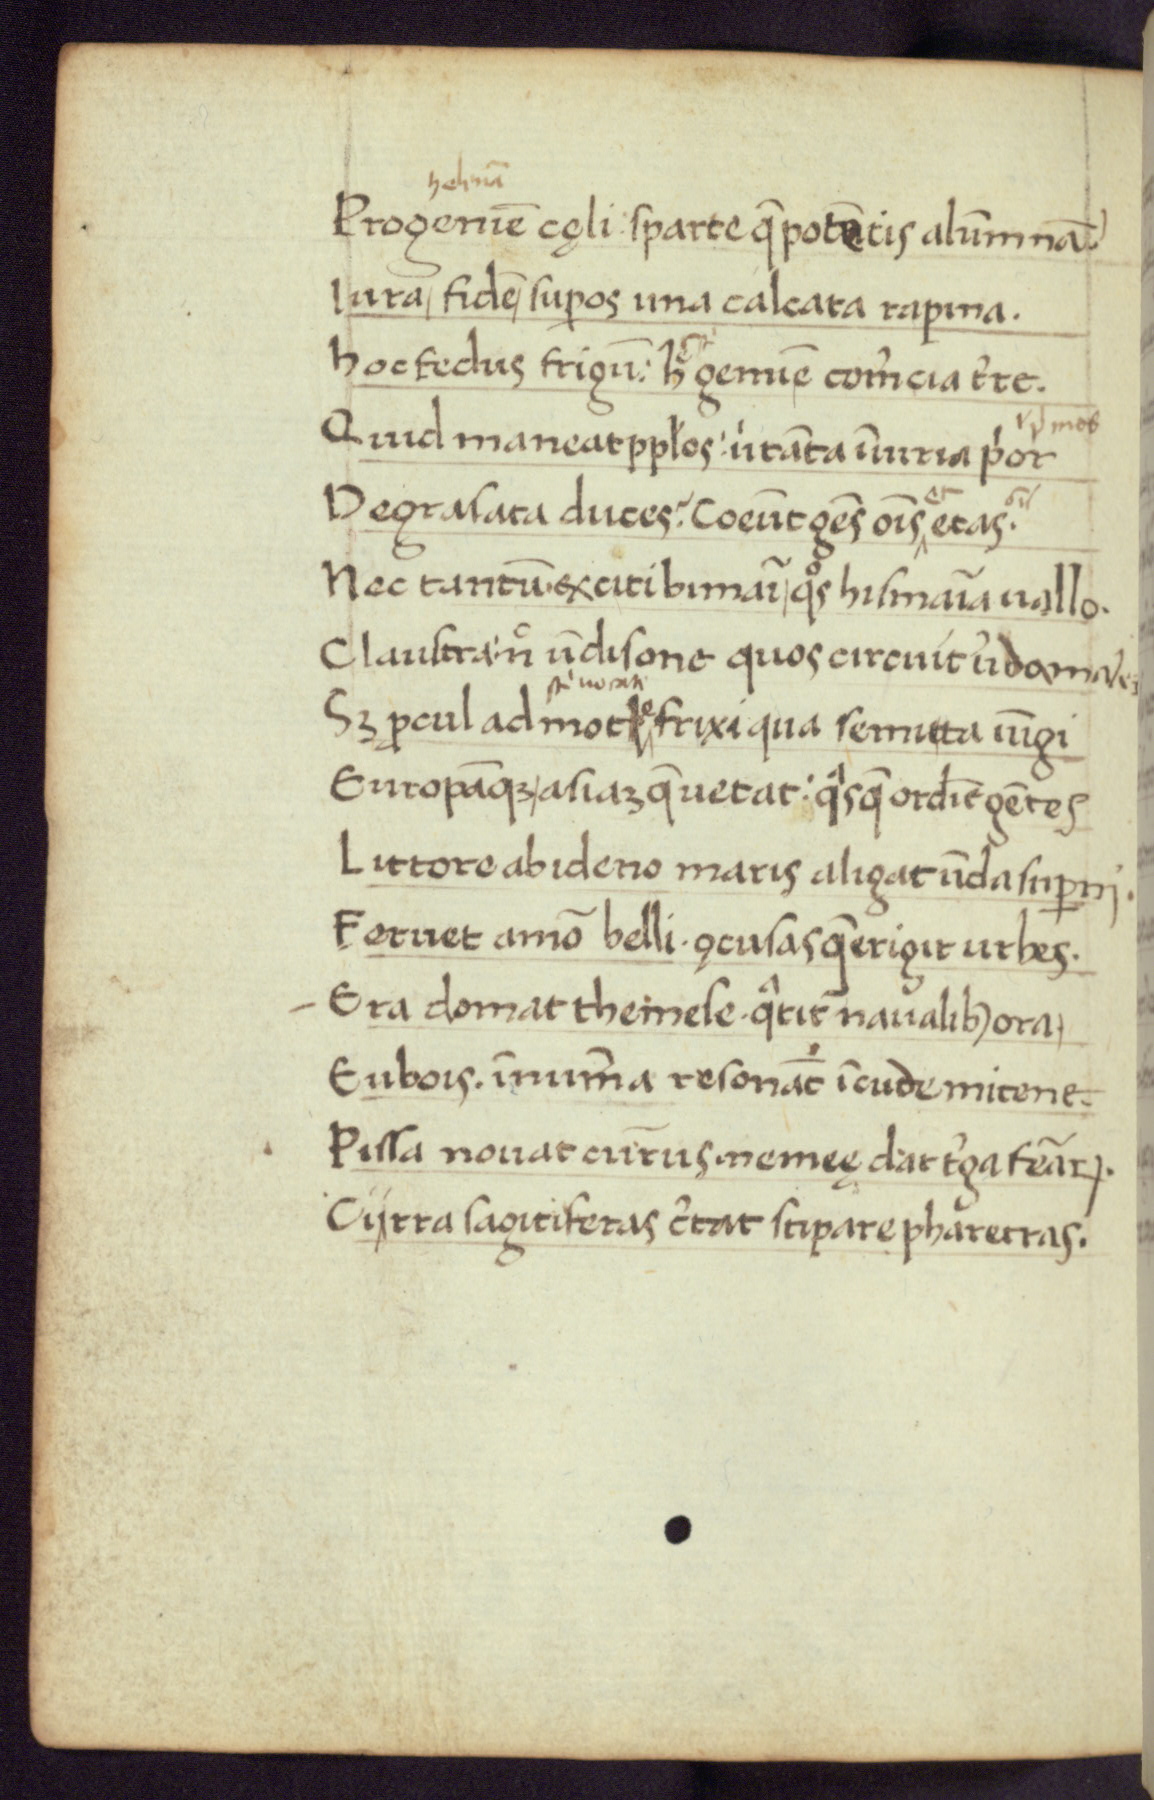 helenā
Progeniē cęli sparte q̄ potētis alūmnā.
Iura, fidē, suꝑos una calcata rapina.
hoc fedus frigiū: h̄ geniūe com̄cia t̄re.
Quid maneat ppl̄os: ut tāta īniuria p̄or
Degrasata duces? Coeūt gēs oīs et etas.
Nec tantū exciti bimaī, qͦs hismaīa uallo.
Claustra: nͨ ūdisone quos circuit ūdo maleę
Sꝫ ꝓcul admotē frixi qua semita iūgi
Europāqꝫ, asiaꝫ q̄ uetat: qͣsq̄ ordīe gētes
Littore abideno maris aligat ūda suꝑni.
Feruet amō belli. ꝯcusasq̄ erigit urbes.
Era domat themese. qͣtit̄ naualibꝫ ora,
Eubois. īnum̄a resonāt īcude micene.
Pissa nouat currus. nemeę dat t̄ga feāꝝ.
Cyrra sagitiferas c̄tat stipare pharetras.